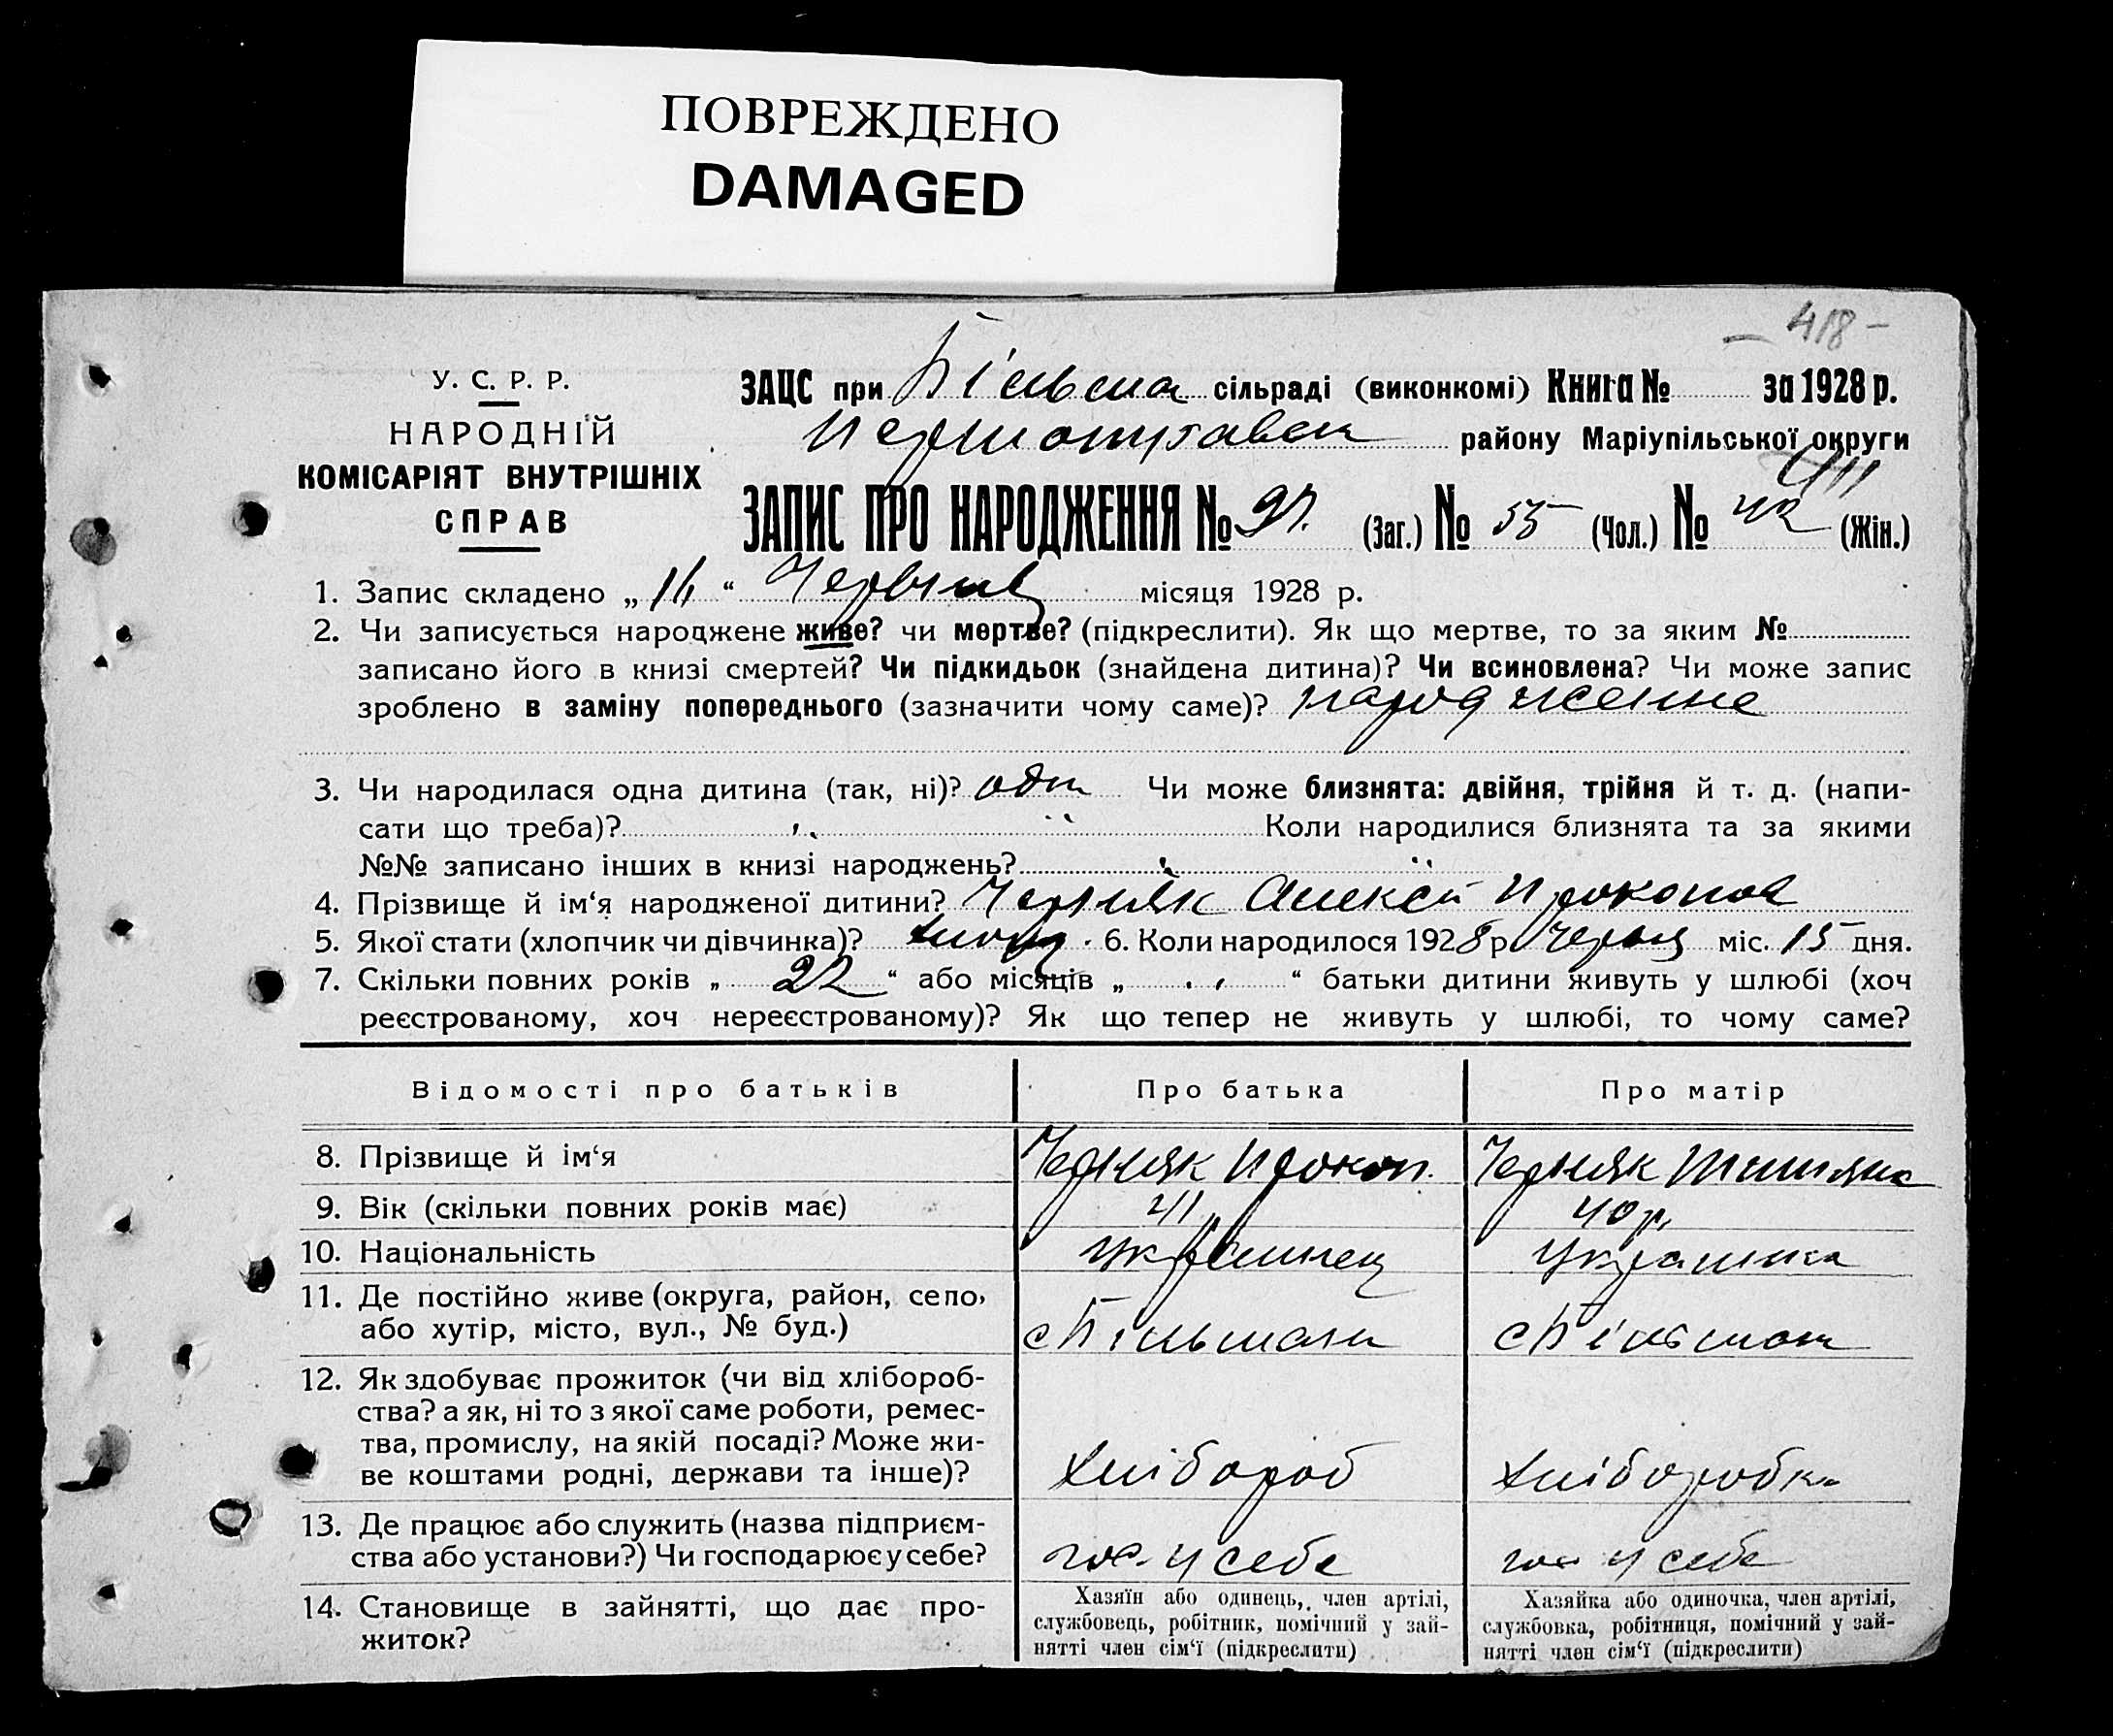 ПОВРЕЖДЕНО
DAMAGED
- 418 -
У. С. Р. Р.
НАРОДНІЙ
КОМІСАРІЯТ ВНУТРІШНІХ
СПРАВ
ЗАЦС при сільраді (виконкомі) Книга № за 1928 р.
району Маріупільської округи
ЗАПИС ПРО НАРОДЖЕННЯ № 97. (Заг.) № 55 (Чол.) № 42 (Жін.)
1. Запис складено „ 16 “ Червня місяця 1928 р.
2. Чи записується народжене живе? чи мертве? (підкреслити). Як що мертве, то за яким №
записано його в книзі смертей? Чи підкидьок (знайдена дитина)? Чи всиновлена? Чи може запис
зроблено в заміну попереднього (зазначити чому саме)? народження
3. Чи народилася одна дитина (так, ні)? одна Чи може близнята: двійня, трійня й т. д. (напи-
сати що треба)? Коли народилися близнята та за якими
№№ записано інших в книзі народжень?
4. Прізвище й ім‘я народженої дитини? Черняк Алексей Прокопов
5. Якої стати (хлопчик чи дівчинка)? хлопч. 6. Коли народилося 1928 р. Червня міс. 15 дня.
7. Скільки повних років „ 22 “ або місяців „ “ батьки дитини живуть у шлюбі (хоч
реєстрованому, хоч нереєстрованому)? Як що тепер не живуть у шлюбі, то чому саме?
Відомості про батьків Про батька Про матір
8. Прізвище й ім‘я Черняк Прокоп. Черняк Татьяна
9. Вік (скільки повних років має) 41 40 р.
10. Національність Українец Українка
11. Де постійно живе (округа, район, село,
або хутір, місто, вул., № буд.)
12. Як здобуває прожиток (чи від хлібороб-
ства? а як, ні то з якої саме роботи, ремес-
тва, промислу, на якій посаді? Може жи-
ве коштами родні, держави та інше)? хлібороб хлібороbка
13. Де працює або служить (назва підприєм-
ства або установи?) Чи господарює у себе? гос. у себе гос у себе
14. Становище в зайнятті, що дає про-
житок?
Хазяїн або одинець, член артілі,
службовець, робітник, помічний у зай-
нятті член сім‘ї (підкреслити)
Хазяйка або одиночка, член артілі,
службовка, робітниця, помічний у зай-
нятті член сім‘ї (підкреслити)